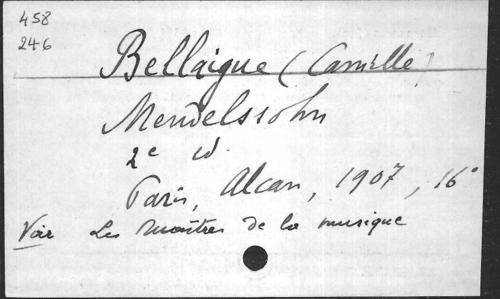 458
246
Bellaigue (Camille)
Mendelssohn
2e éd.
Paris, Alcan, 1907, 16°
Voir Les Maîtres de la musique